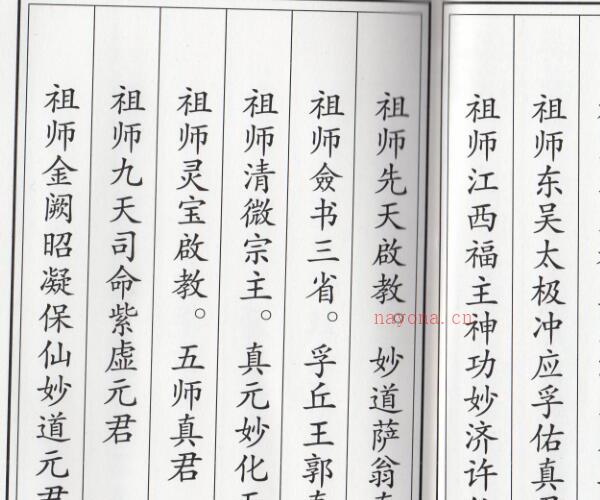 祖师东吴太极冲应孚佑真
祖师江西福主神功妙济许
祖师先天啟教。妙道萨翁
祖师僉书三省。孚丘王郭
祖师清微宗主。真元妙化
祖师灵宝啟教。五师真君
祖师九天司命紫虚元君
祖师金阙昭凝保仙妙道元君
nayona.cn